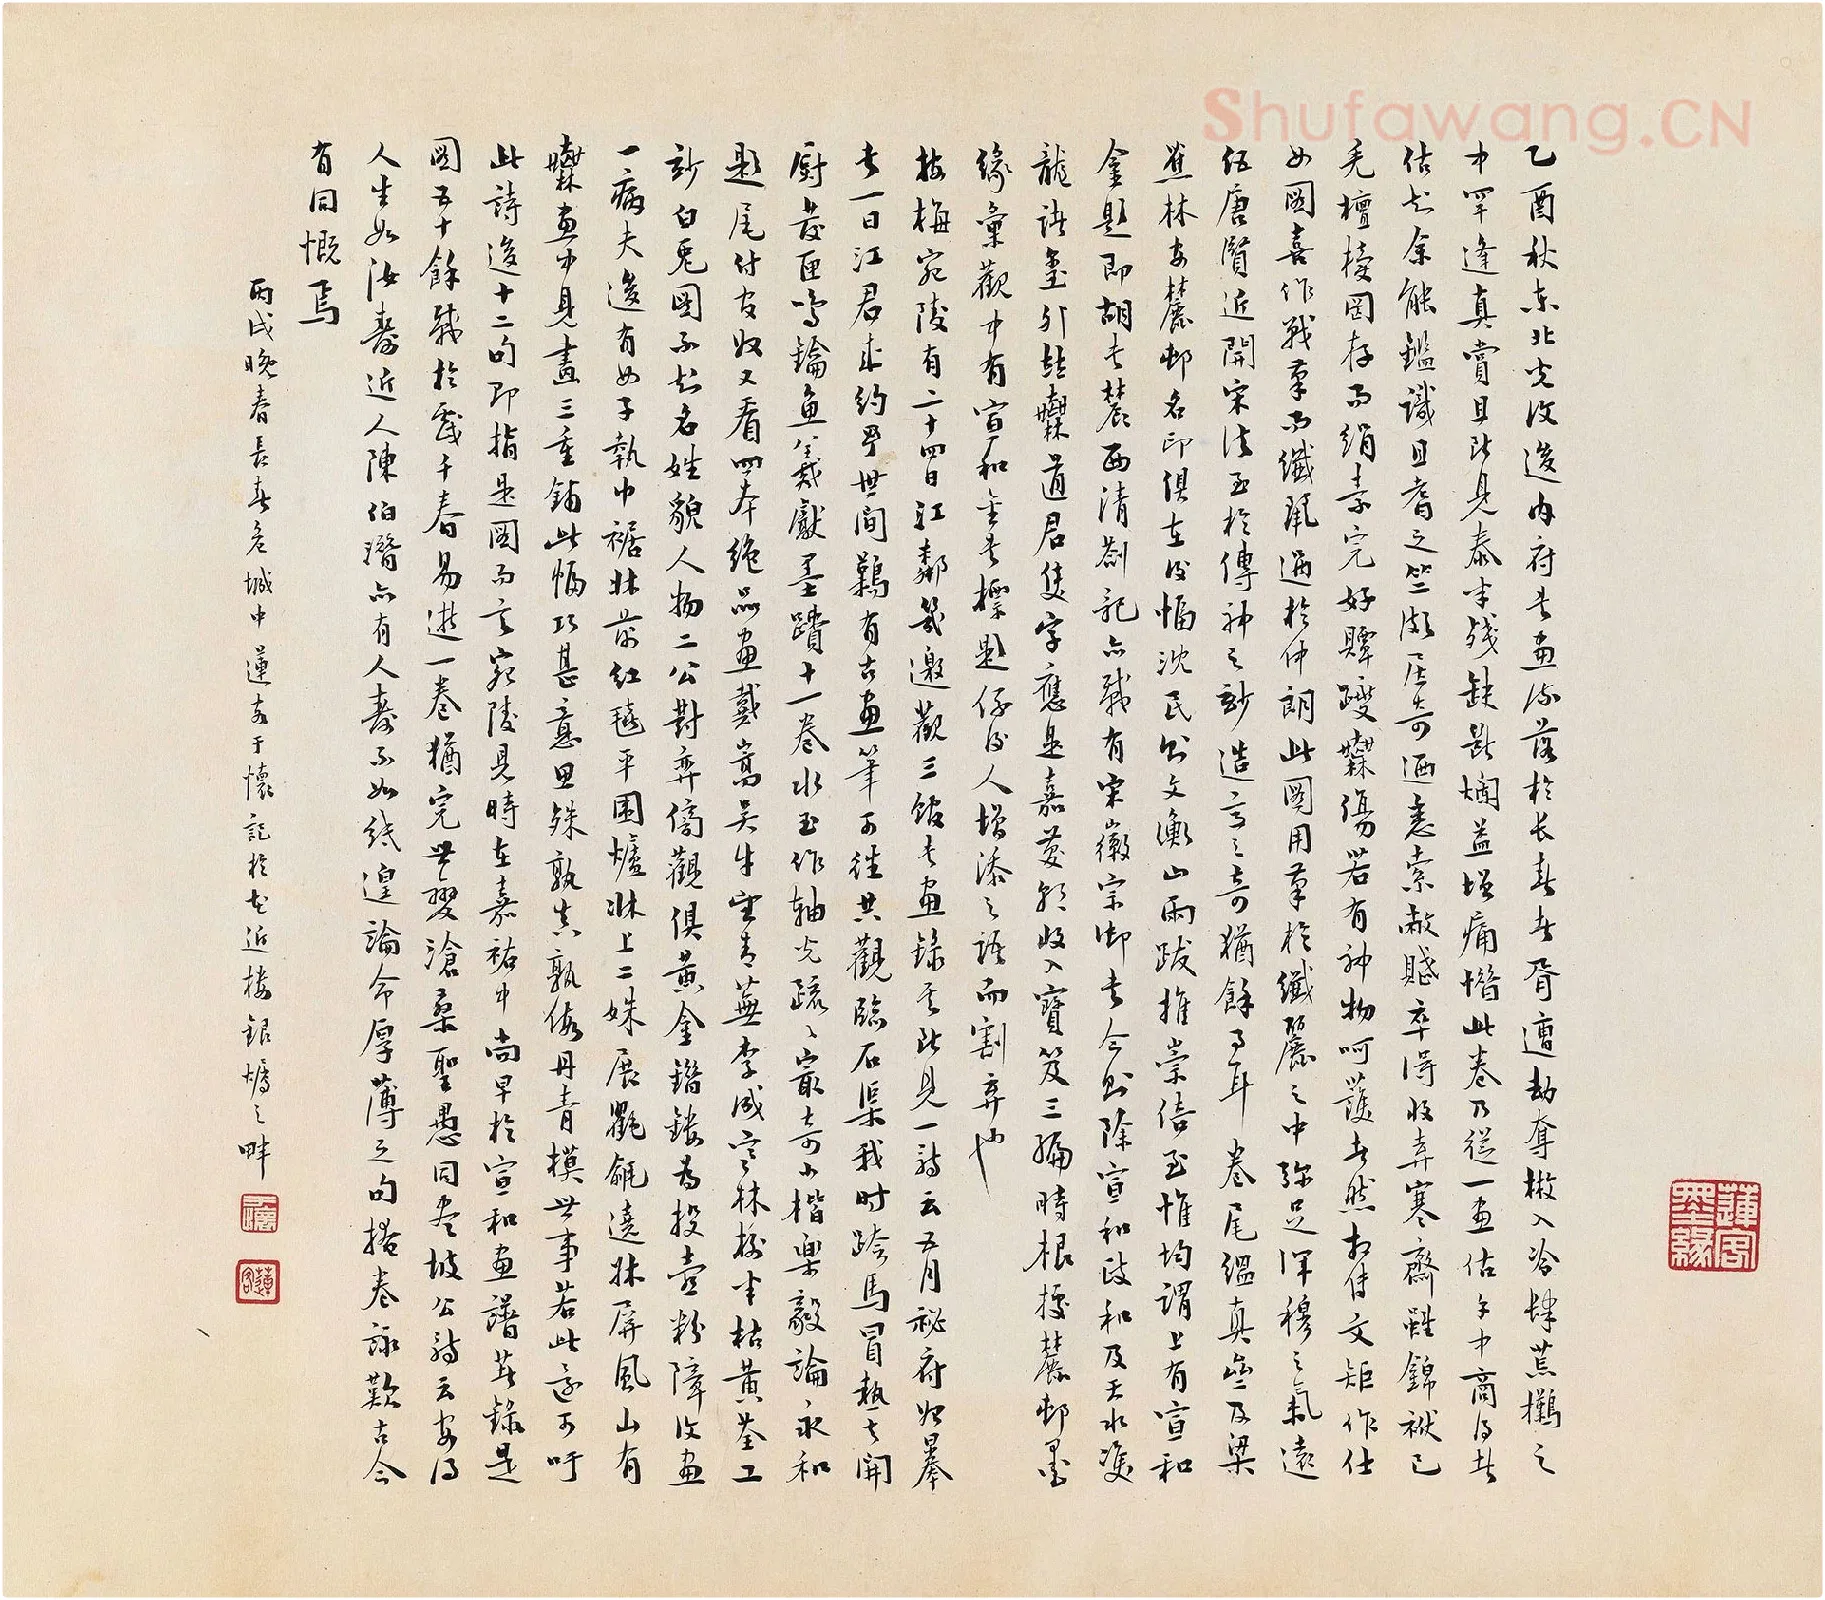 Shufawang.CN
乙酉秋東北光復後內府書畫流落於長春者胥遭劫奪椒入冷肆荒攤之
中罕逢真賞且所見泰半殘缺黦爛益增痛惜此卷乃從一畫估手中商得者
估知余能鑑識且耆之篤頗居奇迺悉索敝賦卒得收弆寒齋雖錦袱已
禿檀椟固存而絹素完好贉躞鱗傷若有神物呵護者然相傳文矩作仕
女圖喜作戰筆而纖麗過於仲朗此圖用筆於纖麗之中彌足渾穆之氣遠
紹唐賢近開宋法至於傳神之妙造言之奇猶餘事耳 卷尾縕真齋及梁
蕉林安麓邨名印俱在後幅沈民則文衡山兩跋推崇備至惟均謂上有宣和
金題即胡書農西清劄記亦載有宋徽宗御書今則除宣和政和及天水雙
龍諸璽外無道君隻字應是嘉慶朝收入寶笈三編時根據麓邨墨
緣彙觀中有宣和金書標題係後人增添之語而割棄也
按梅宛陵有二十四日江鄰幾邀觀三館書畫錄其所見一詩云五月祕府始暴
書一日江君來約予世間難有古畫筆可往共觀臨石渠我時跨馬冒熱去開
廚發匣鳴鑰魚羲獻墨蹟十一卷水玉作軸光疏疏最奇小楷樂毅論永和
題尾付官奴又看四本絕品畫戴嵩吳牛望青蕪李成寒林樹半枯黃荃工
妙白兔圖不知名姓貌人物二公對弈傍觀俱黃金錯鏤為投壺粉障復畫
一病夫後有女子執巾裾牀前紅毯平圍爐牀上二姝展氍毹遶牀屏風山有
無畫中見畫三重鋪此幅巧甚意思殊孰真孰假丹青模世事若此還可吁
此詩後十二句即指是圖而言宛陵見時在嘉祐中尚早於宣和畫譜著錄是
圖五十餘載於戲千春易逝一卷猶完世變滄桑聖愚同盡坡公詩云安得
人生如汝壽近人陳伯潛亦有人壽不如紙遑論命厚薄之句撫卷詠歎古今
有同慨焉
丙戌晚春長春危城中蓮客于懷記於花近樓銀燭之畔
于懷
蓮客
蓮客墨緣